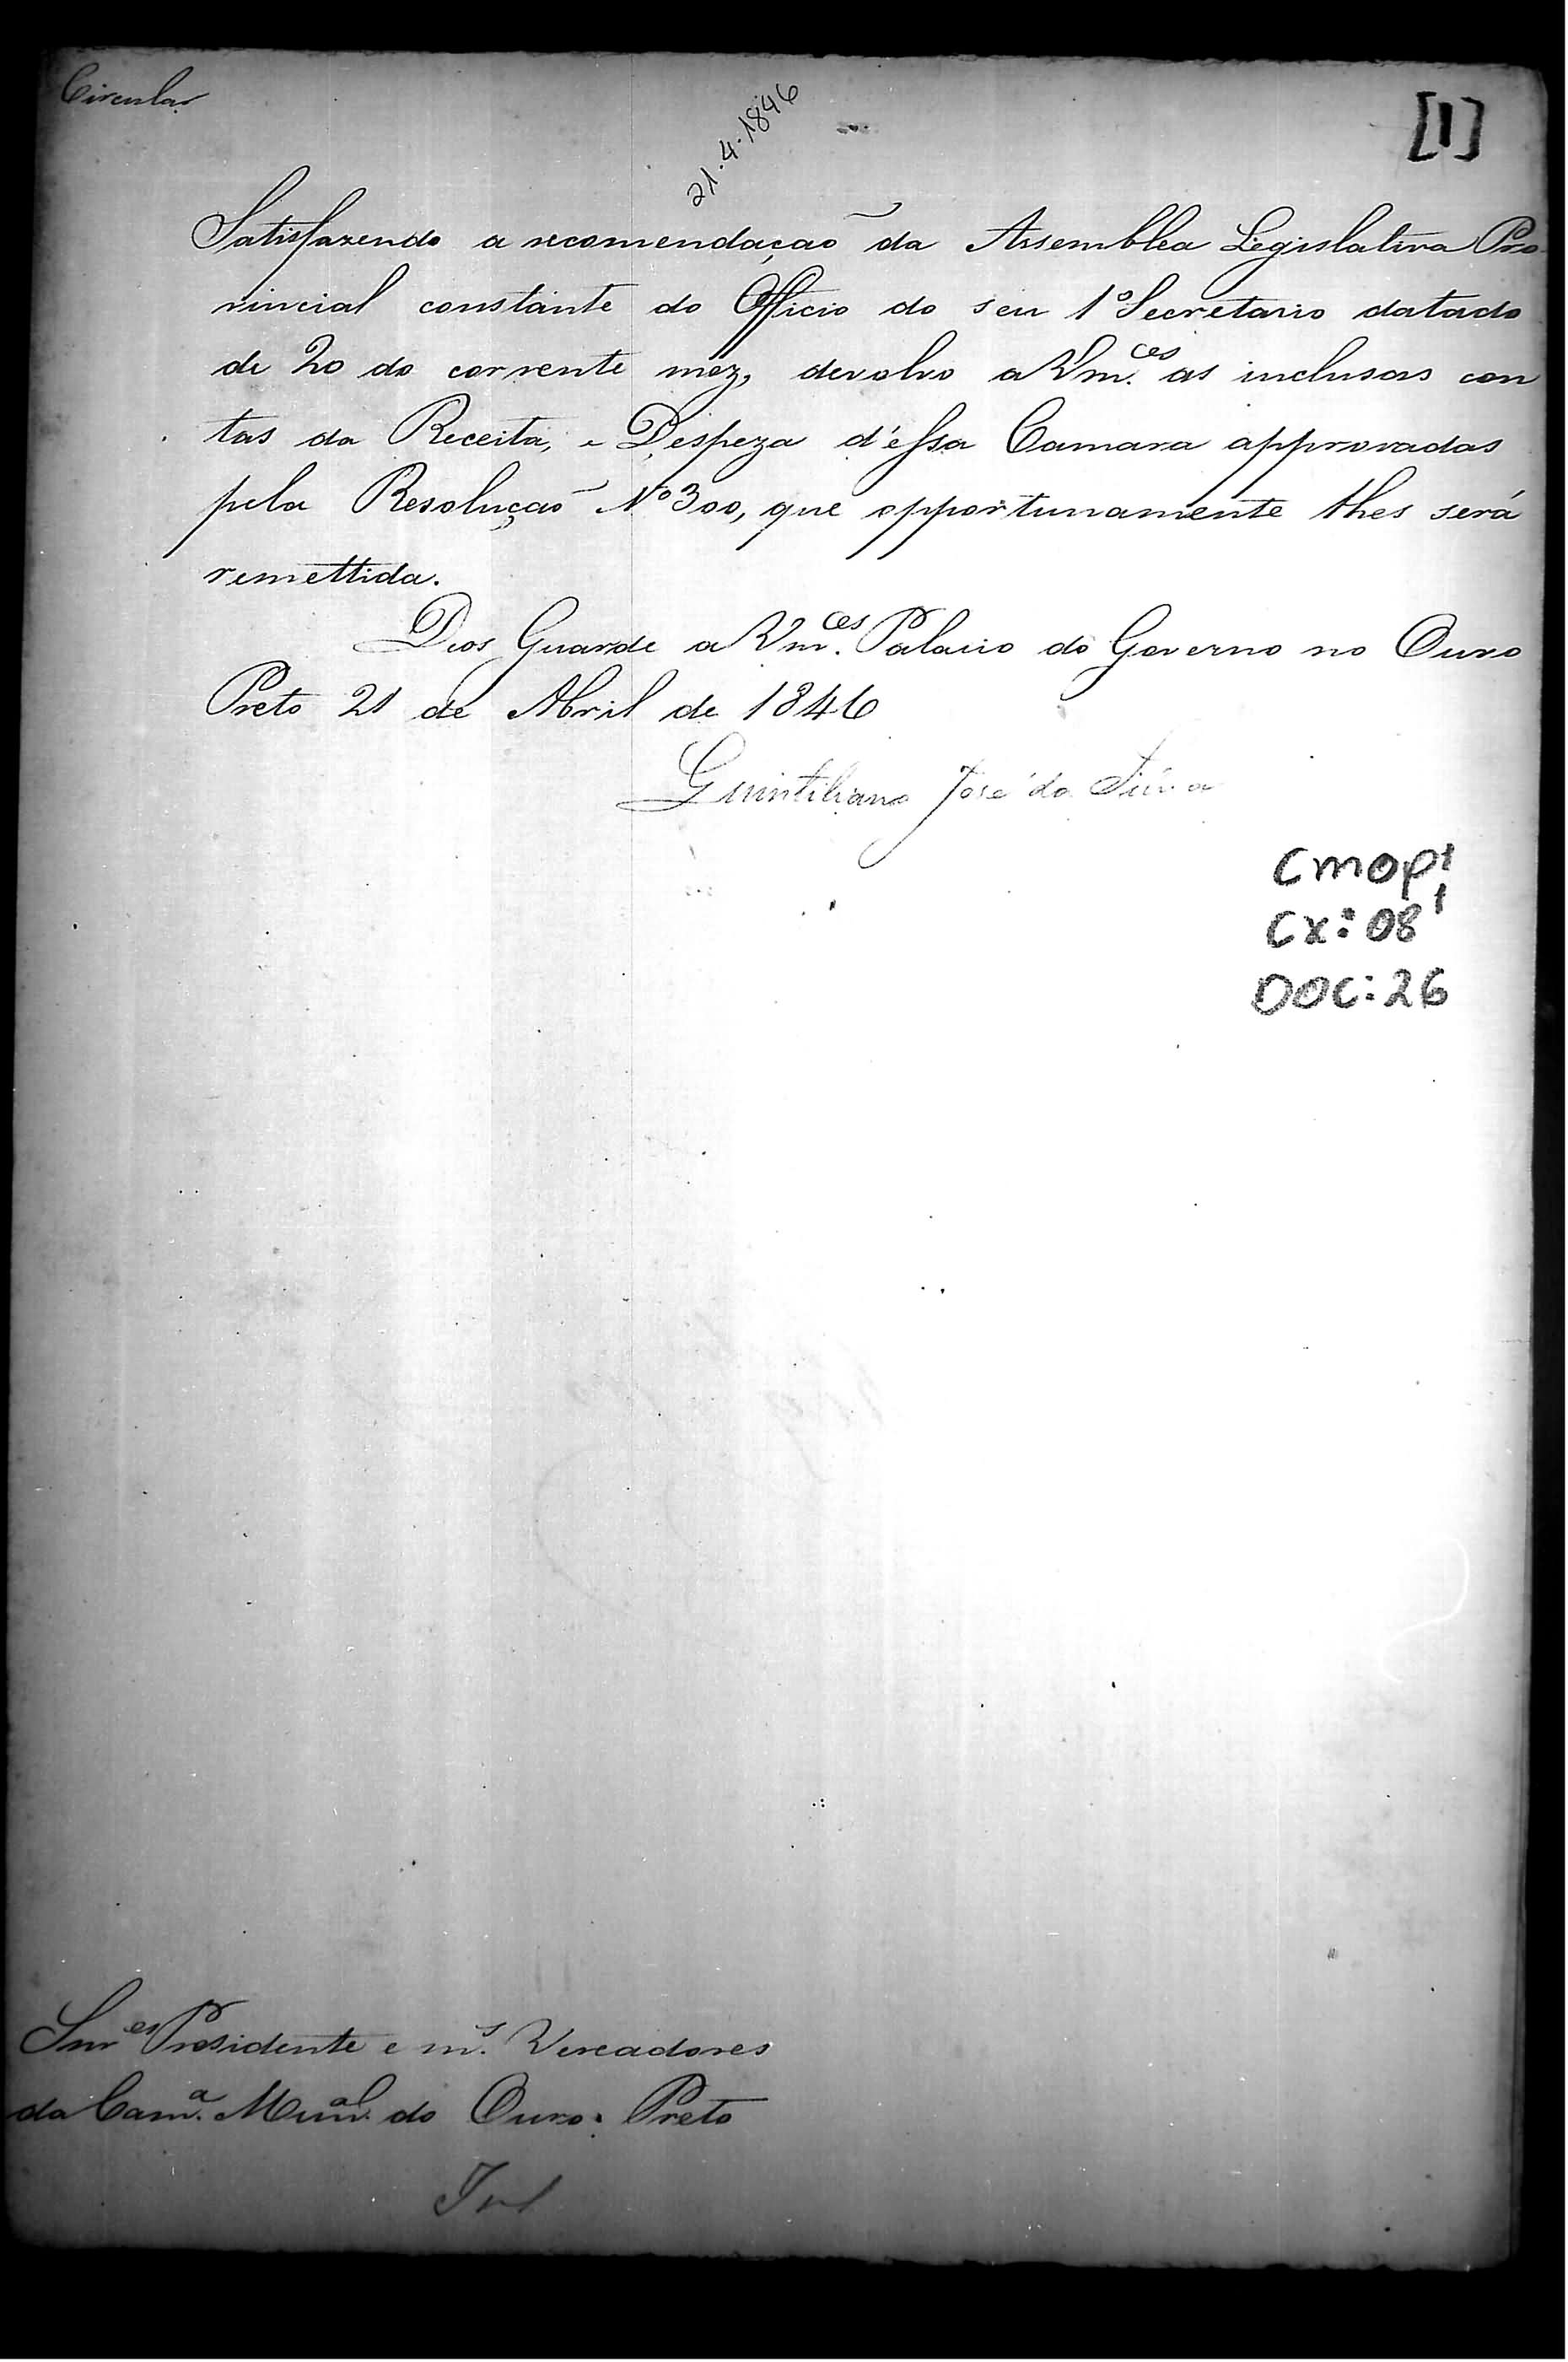 Circular
21.4.1846
[1]
Satisfazendo a recomendação da Assemblea Legislativa Pro
vincial constante do Officio do seu 1º Secretario datado
de 20 do corrente mez, devolvo a Vm.ces as inclusas con
tas da Receita, e Despeza d'essa Camara approvadas
pela Resolução Nº 300, que opportunamente lhes será
remettida.
Deos Guarde a Vm.ces Palacio do Governo no Ouro
Preto 21 de Abril de 1846
Quintiliano José da Silva
CMOP
CX: 08
DOC: 26
Snr.es Presidente e m.s Vereadores
da Cam.a Mun.al do Ouro Preto